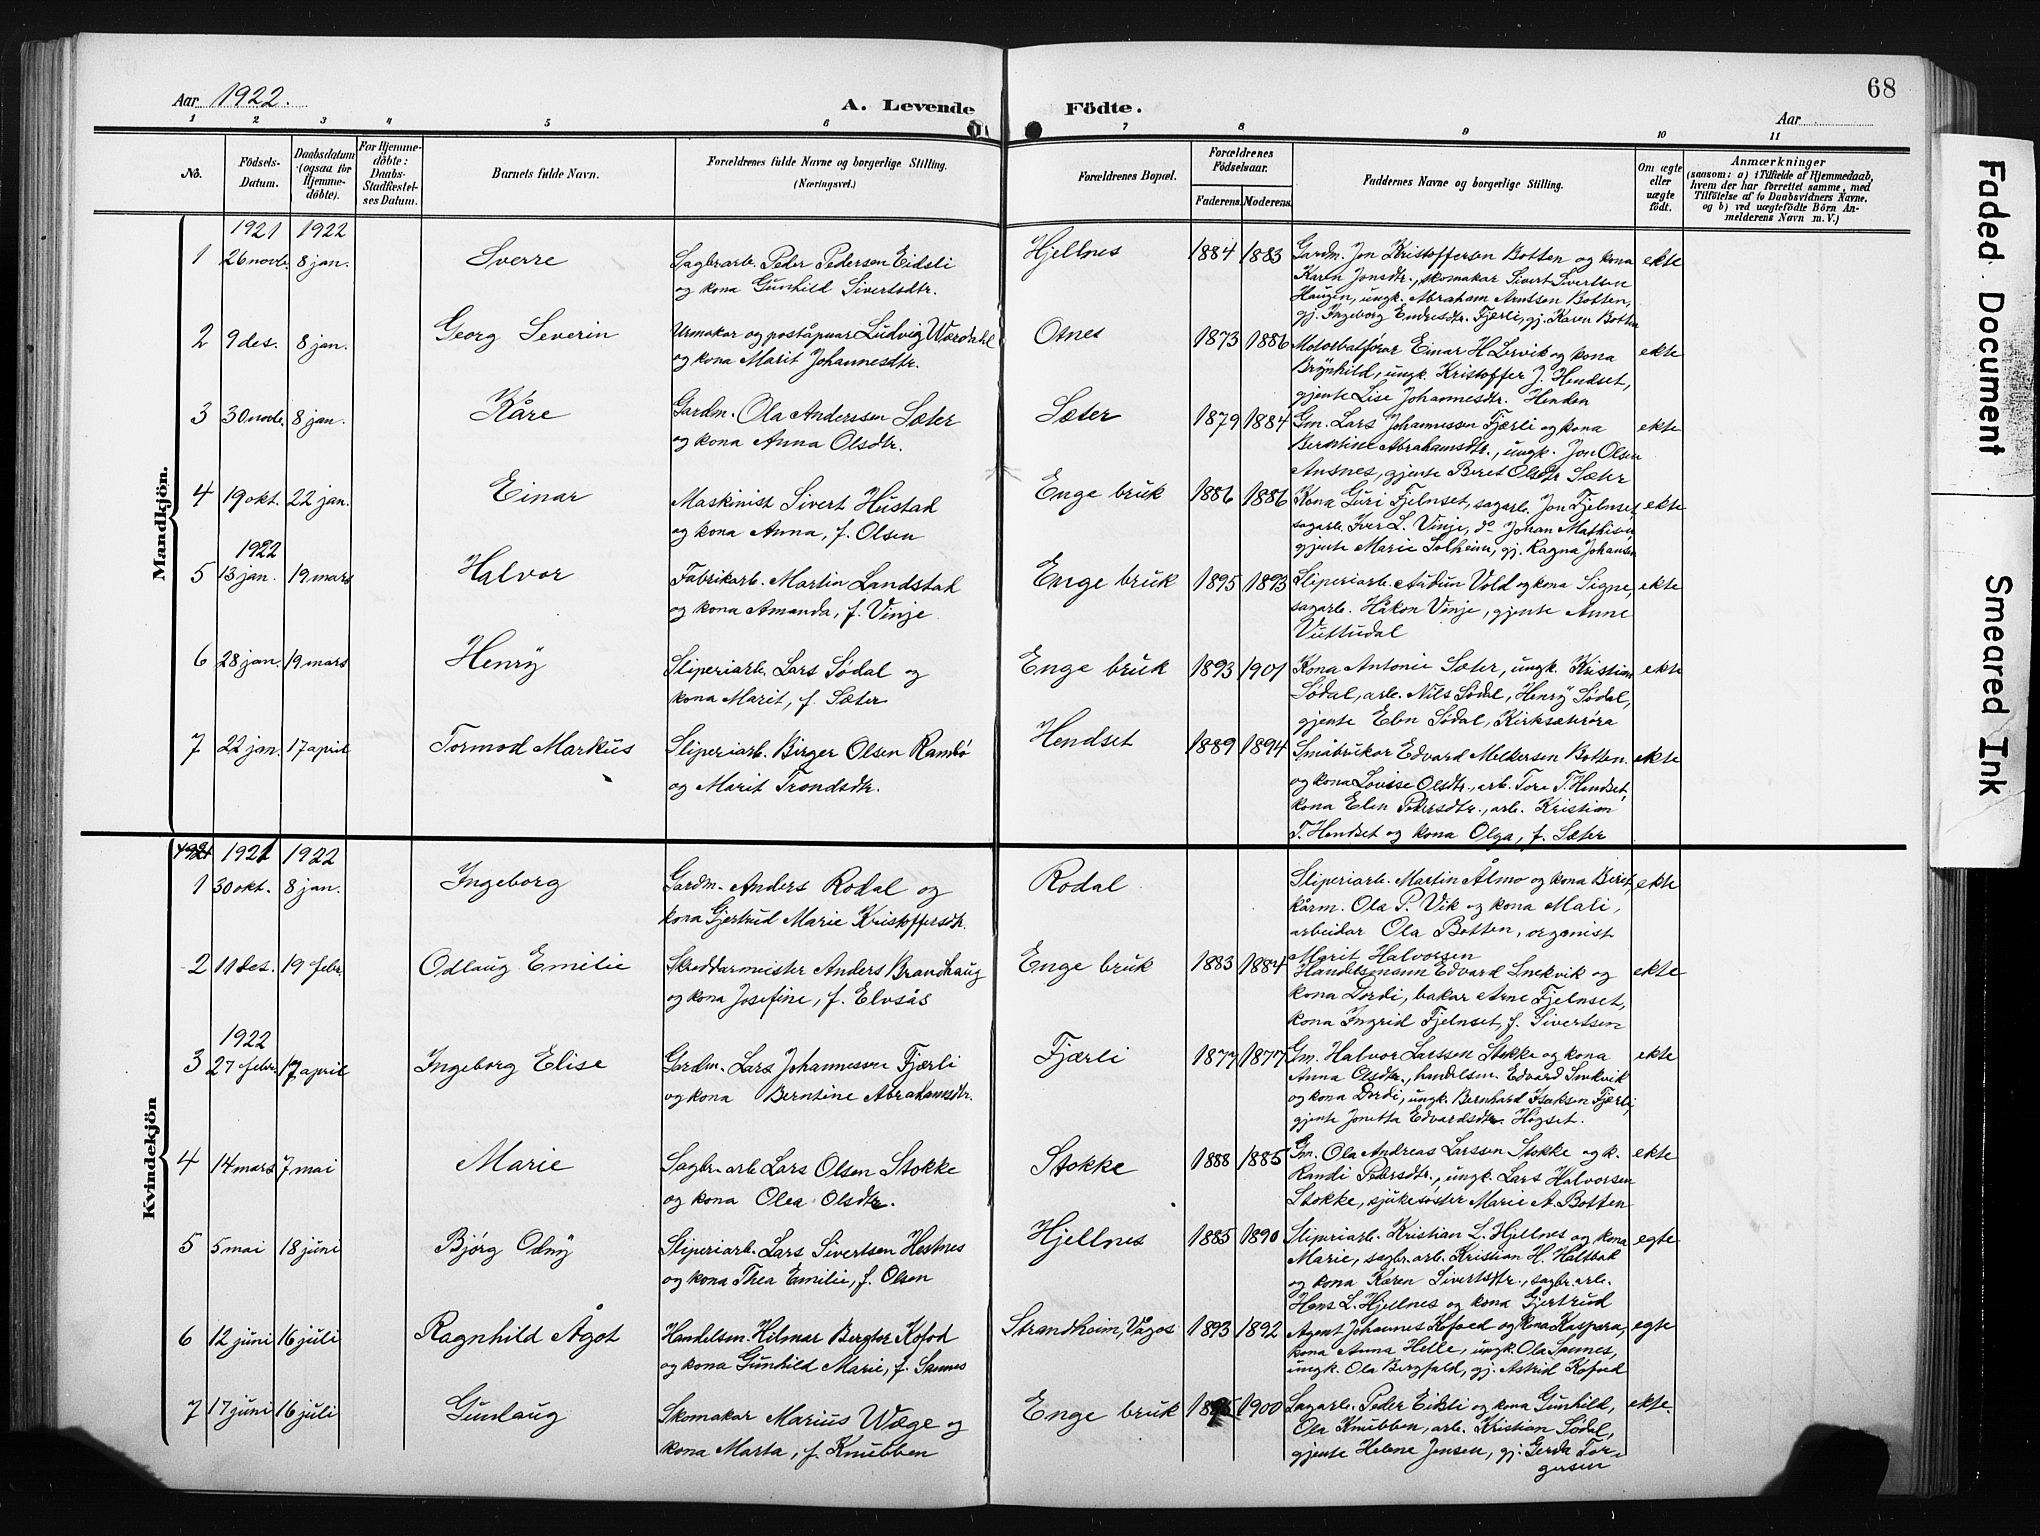 68
Aar 1922.
A. Levende Födte.
Aar
1 2 3 4 5 6 7 8 9 10 11
No.
Födsels-Datum.
Daabsdatum (ogsaa for Hjemme-döbte).
For Hjemme-döbte: Daabs-Stadfæstel-ses Datum.
Barnets fulde Navn.
Forældrenes fulde Navne og borgerlige Stilling.
(Næringsvei.)
Forældrenes Bopæl.
Forældrenes Födselsaar.
Faderens. Moderens.
Faddernes Navne og borgerlige Stilling.
Om ægte eller uægte födt.
Anmærkninger
(saasom: a) i Tilfælde af Hjemmedaab,
hvem der har forrettet samme, med
Tilföielse af to Daabsvidners Navne.
og b) ved uægtefödte Börn An-
melderens Navn m. V.)
Mandkjön.
1921 1922
1 26 novb. 8 jan. Sverre Sagbr.arb. Peder Pedersen Eidsli Hjellnes 1884 1883 Gardm. Jon Kristoffersen Botten og kona ekte
og kona Gunhild Sivertsdtr. Karen Jonsdtr., skomakar Sivert Sivertsen
Haugen, ungk. Abraham Arntsen Botten,
gj. Ingeborg Endresdtr. Fjærli, gj. Karen Botten
2 9 des. 8 jan. Georg Severin Urmakar og poståpnar Ludvig Wærdahl Otnes 1873 1886 Motorbatförar Einar H. Lervik og kona ekte
og kona Marit Johannesdtr. Brynhild, ungk. Kristoffer J. Hendset,
gjente Lise Johannesdtr. Henden
3 30 novb. 8 jan. Kåre Gardm. Ola Anderssen Sæter Sæter 1879 1884 Gm. Lars Johannessen Fjærli og kona ekte
og kona Anna Olsdtr. Berntine Abrahamsdtr., ungk. Jon Olsen
Ansnes, gjente Beret Olsdtr Sæter
4 19 okt. 22 jan. Einar Maskinist Sivert Hustad Enge bruk 1886 1886 Kona Guri Fjelnset, sagarb. Jon Fjelnset, ekte
og kona Anna, f. Olsen sagarb. Iver L. Vinje, do Johan Mathisen
gjente Marie Solheim, gj. Ragna Johansen
1922
5 13 jan. 19 mars Halvor Fabrikarb. Martin Landstad Enge bruk 1895 1893 Sliperiarb. Audun Vold og kona Signe, ekte
og kona Amanda, f. Vinje sagarb. Håkon Vinje, gjente Anne
Vuttudal
6 28 jan. 19 mars Henry Sliperiarb. Lars Södal og Enge bruk 1893 1901 Kona Antonie Sæter, ungk. Kristian ekte
kona Marit, f. Sæter Södal, arb. Nils Södal, Henry Södal,
gjente Ebn Södal, Kirksæterøra
7 22 jan. 17 april Tormod Markus Sliperiarb. Birger Olsen Rambø Hendset 1889 1894 Småbrukar Edvard Melkersen Botten ekte
og Marit Trondsdtr. og kona Lovise Olsdtr., arb. Tore T. Hendset,
kona Elen Pedersdtr., arb. Kristian
T. Hendset og kona Olga, f. Sæter
Kvindekjön
1921 1922
1 30 okt. 8 jan. Ingeborg Gardm. Anders Rodal og Rodal Sliperiarb. Martin Ålmo og kona Beret, ekte
kona Gjertrud Marie Kristoffersdtr. kårm. Ola P. Vik og kona Mali,
arbeidar Ola Botten, organist
Marit Halvorsen
2 11 des. 19 febr. Odlaug Emilie Skreddarmeister Anders Brandhaug Enge bruk 1883 1884 Handelsmann Edvard Snekvik og ekte
og kona Josefine, f. Elvsås kona Dordi, bakar Arne Fjelnset,
kona Ingrid Fjelnset, f. Sivertsen
1922
3 27 febr. 17 april Ingeborg Elise Gardm. Lars Johannessen Fjærli Fjærli 1877 1877 Gm. Halvor Larssen Stokke og kona ekte
og kona Berntine Abrahamsdtr. Anna Olsdtr., handelsm. Edvard Snekvik
og kona Dordi, ungk. Bernhard Isaksen Fjærli,
gjente Jonetta Edvardsdtr. Högset.
4 14 mars 7 mai Marie Sagbr.arb Lars Olsen Stokke Stokke 1888 1885 Gm. Ola Andreas Larssen Stokke og k. ekte
og kona Olea Olsdtr. Randi Pedersdtr., ungk. Lars Halvorsen
Stokke, sjukesöster Marie A. Botten
5 5 mai 18 juni Bjørg Odny Sliperiarb. Lars Sivertsen Hestnes Hjellnes 1885 1890 Sliperiarb. Kristian L. Hjellnes og kona egte
og kona Thea Emilie, f. Olsen Marie, sagbr.arb. Kristian H. Haltbak
og kona Karen Sivertsdtr., sagbr.arb.
Hans L. Hjellnes og kona Gjertrud
6 12 juni 16 juli Ragnhild Ågot Handelsm. Hilmar Bergtor Kofod Strandheim, Vågos 1893 1892 Agent Johannes Kofoed og kona Kaspara, egte
og kona Gunhild Marie, f. Sannes kona Anna Helle, ungk. Ola Sannes,
ungk. Ola Bergfald, gj. Astrid Kofoed
7 17 juni 16 juli Gunlaug Skomakar Marius Wæge og Enge bruk 1900 Sagarb. Peder Eidsli og kona Gunhild, ekte.
kona Marta, f. Knubben Ola Knubben, arb. Kristian Södal,
gjente Helene Jensen, gj. Gerda Tor-
gersen
Faded Document
Smeared Ink